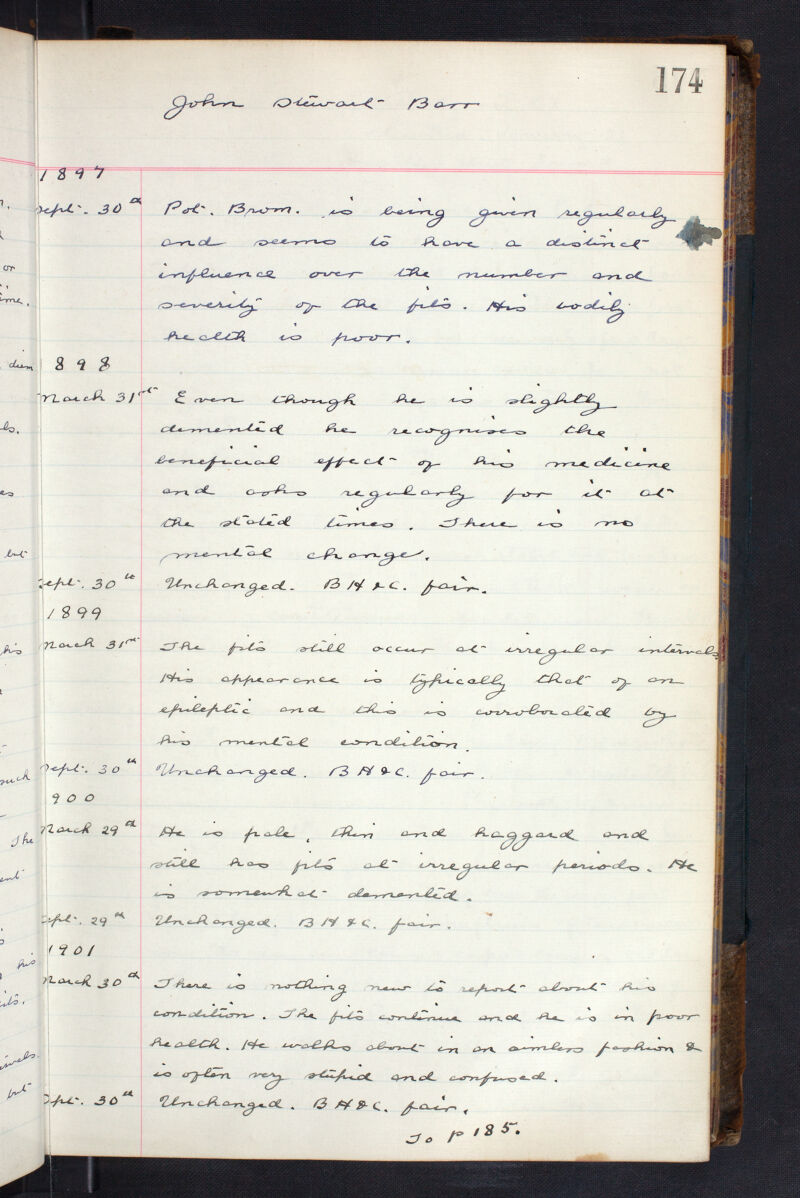 174
John Stewart Barr
1897
Sept. 30th Pot. Brom. is being given regularly
and seems to have a distinct
influence over the number and
severity of the fits. His bodily
health is poor.
898
March 31st Even though he is slightly
demented he recognises the
beneficial effect of his medicine
and asks regularly for it at
the stated times. There is no
mental change.
Sept. 30th Unchanged. B H & C. fair.
1899
March 31st The fits still occur at irregular intervals.
His appearance is typically that of an
epileptic and this is corroborated by
his mental condition.
Sept. 30th Unchanged. B H & C. fair.
900
March 29th He is pale, thin and haggard and
still has fits at irregular periods. He
is somewhat demented.
Sept. 29th Unchanged. B H & C. fair.
1901
March 30th There is nothing new to report about his
condition. The fits continue and he is in poor
health. He walks about in an aimless fashion &
is often very stupid and confused.
Sept. 30th Unchanged. B H & C. fair.
To p 185.